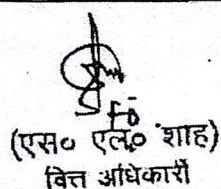 (एस० एल० शाह)
वित्त अधिकारी